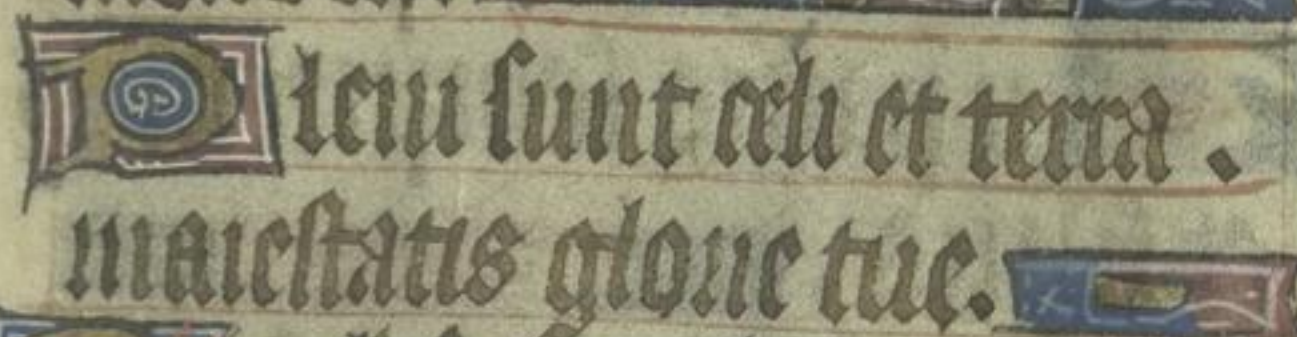 Pleni sunt celi et terra.
maiestatis glorie tue.